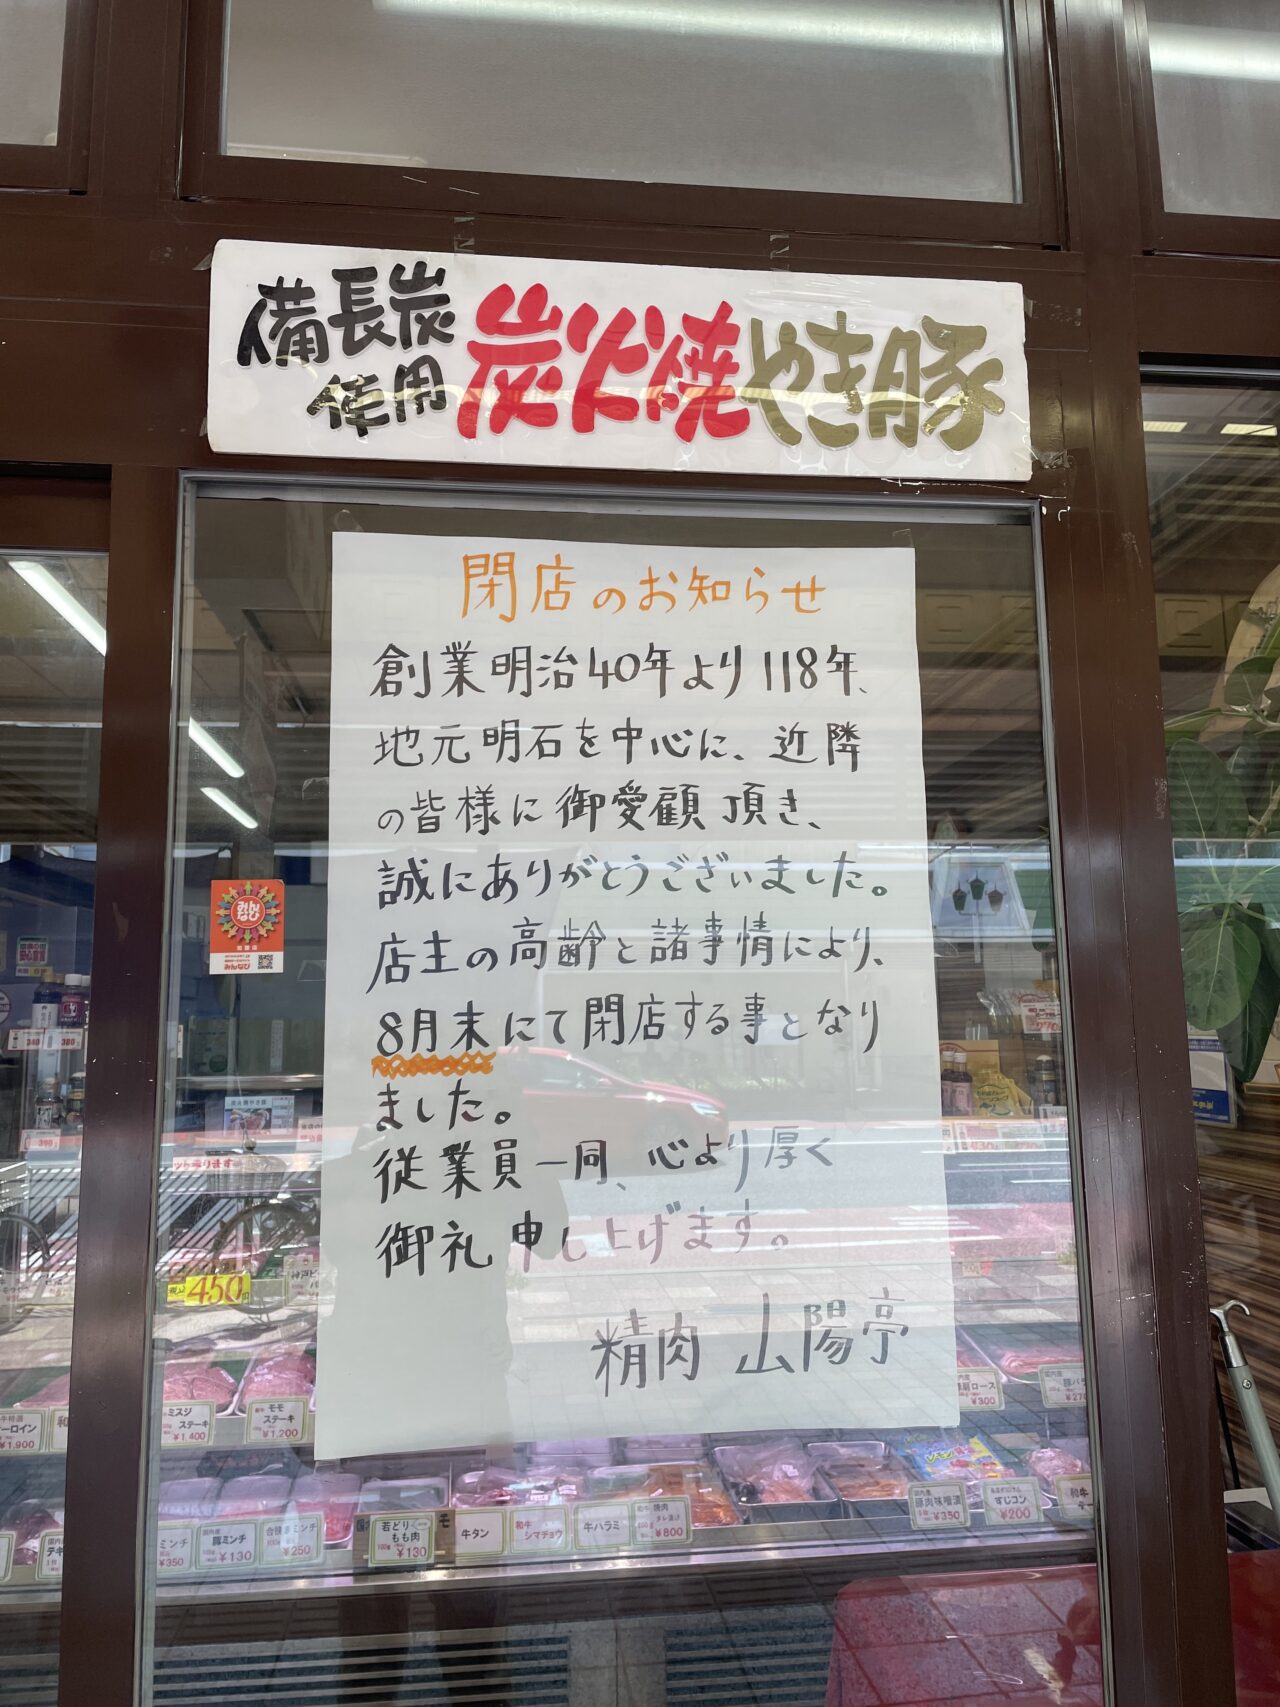 備長炭
使用
炭火焼やき豚
閉店のお知らせ
創業明治40年より118年、
地元明石を中心に、近隣
の皆様に御愛顧頂き、
誠にありがとうございました。
店主の高齢と諸事情により、
8月末にて閉店する事となり
ました。
従業員一同、心より厚く
御礼申し上げます。
精肉 山陽亭
みんなび
340
380
390
450
ミスジ
ステーキ
¥1,400
モモ
ステーキ
¥1,200
ーロイン
¥1,900
国内産
肩ロース
¥300
豚バラ
¥350
国内産
豚ミンチ
¥130
合挽きミンチ
¥250
若どり
もも肉
100g
¥130
牛タン
和牛
シマチョウ
牛ハラミ
焼肉
タレ漬け
¥800
国内産
豚肉味噌漬
¥350
すじコン
¥200
和牛